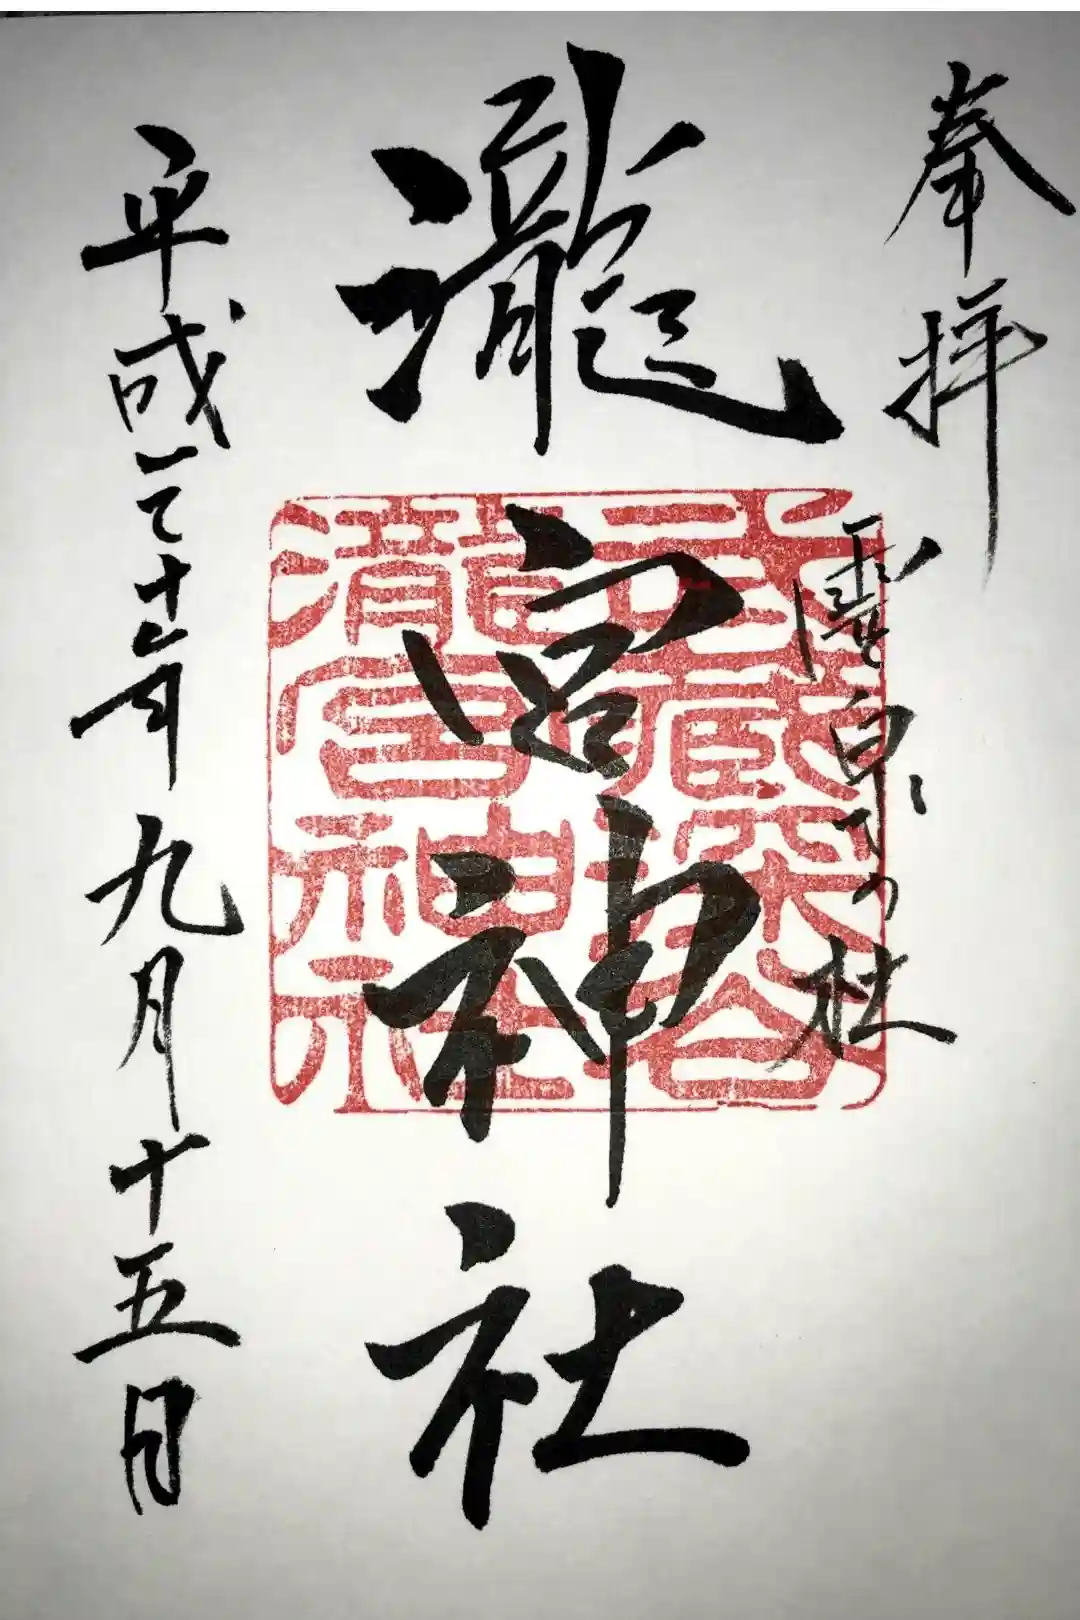 奉拝
霊泉乃杜
武蔵深谷
瀧宮神社
瀧宮神社
平成三十年九月十五日